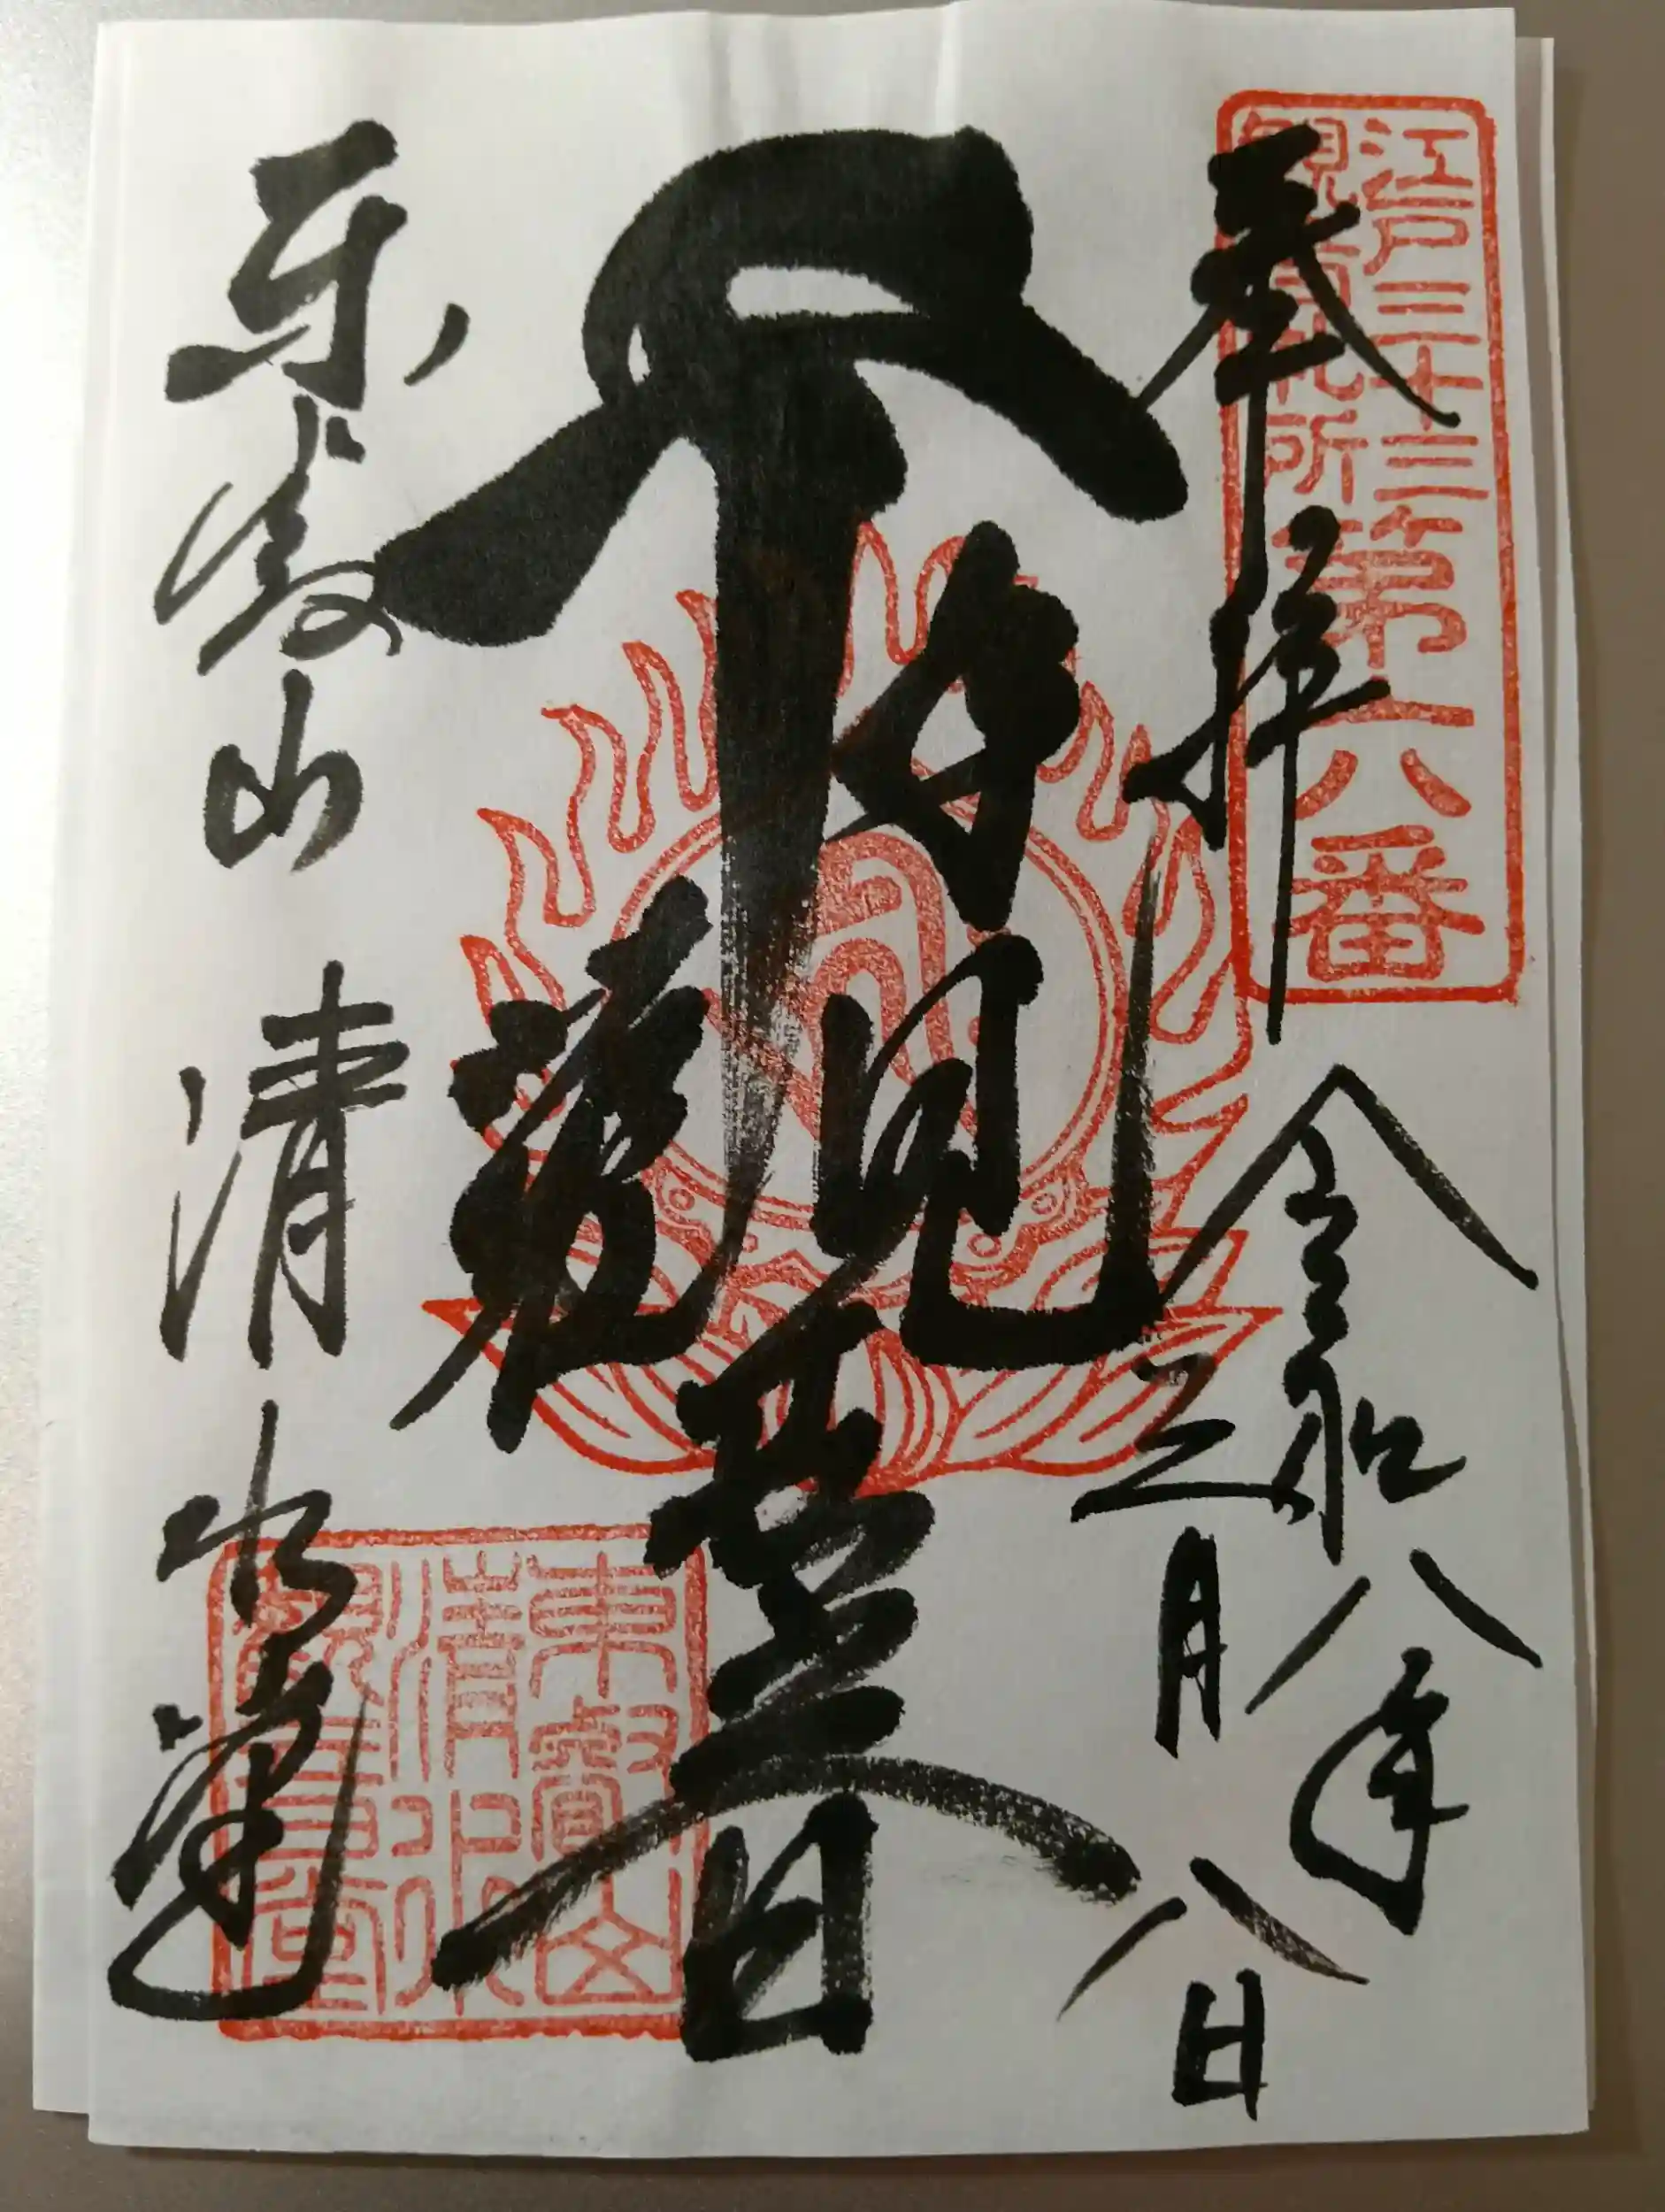 江戸三十三
観音札所
第六番
奉拝
令和八年
三月八日
千手観世音
東叡山 清水堂
東叡山
清水
観音堂